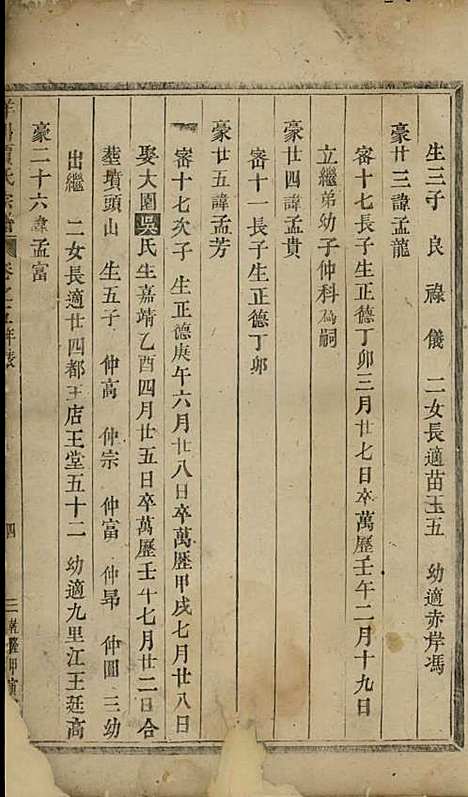 生三子 良 祿 儀 二女長適苗玉五 幼適赤岸馮
豪廿三諱孟龍
審十七長子生正德丁卯三月廿七日卒萬歷壬午二月十九日
立繼弟幼子仲科為嗣
豪廿四諱孟貴
審十一長子生正德丁卯
豪廿五諱孟芳
審十七次子 生正德庚午六月廿八日卒萬歷甲戌七月廿八日
娶大園吳氏生嘉靖乙酉四月廿五日卒萬歷壬午七月廿二日合
塟墳頭山 生五子 仲高 仲宗 仲富 仲昂 仲圓 三幼
出繼 二女長適廿四都王店王堂五十二 幼適九里江王廷高
豪二十六諱孟富
氏宗譜 卷之 年表 四